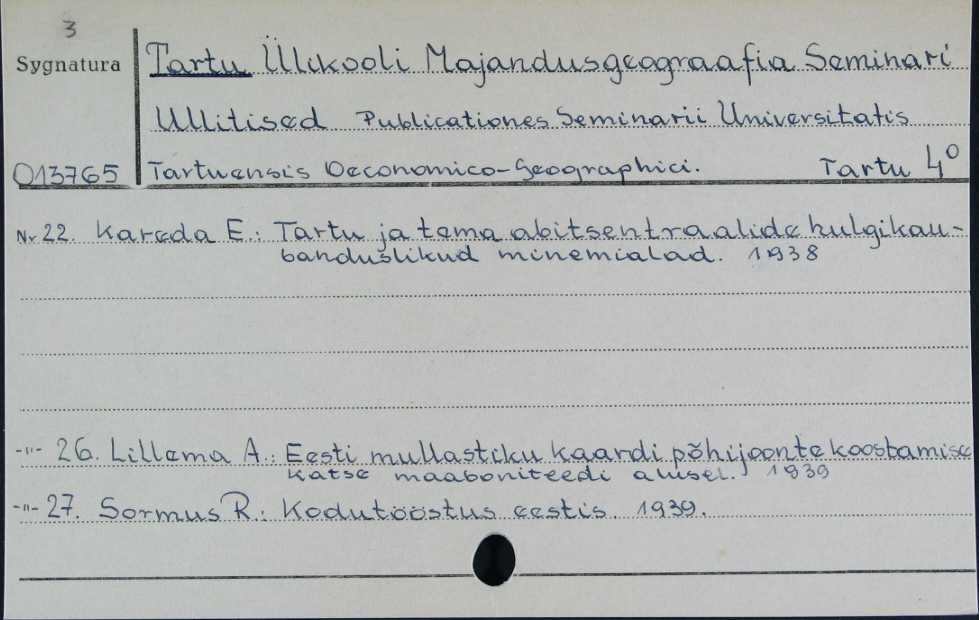 3
Sygnatura
Tartu Ülikooli Majandusgeograafia Seminari
Ullitised Publicationes Seminarii Universitatis
013765 Tartuensis Oeconomico-Geographici. Tartu 4°
Nr 22. Kareda E.: Tartu ja tema abitsentraalide hulgikau-
banduslikud minemialad. 1938
-"- 26. Lillema A.: Eesti mullastiku kaardi põhijoonte koostamise
katse maaboniteedi alusel. 1939
-"- 27. Sormus R.: Kodutööstus eestis. 1939.